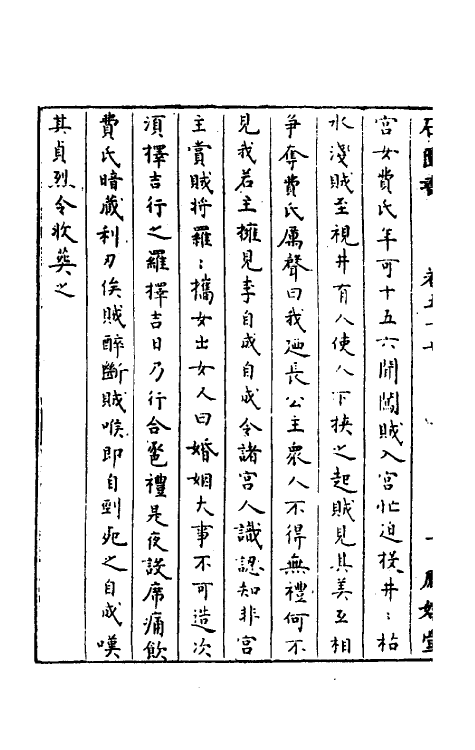 石匱書 卷五十七 一 鳳嬉堂
宮女費氏年可十五六聞闖賊入宮忙迫投井：枯
水淺賊至視井有人使人下挾之起賊見其美互相
爭奪費氏厲聲曰我廼長公主衆人不得無禮何不
見我若主擁見李自成自成令諸宮人識認知非宮
主賞賊將羅：攜女出女人曰婚姻大事不可造次
須擇吉行之羅擇吉日乃行合巹禮是夜設席痛飲
費氏暗藏利刃俟賊醉斷賊喉即自剄死之自成嘆
其貞烈令收葬之